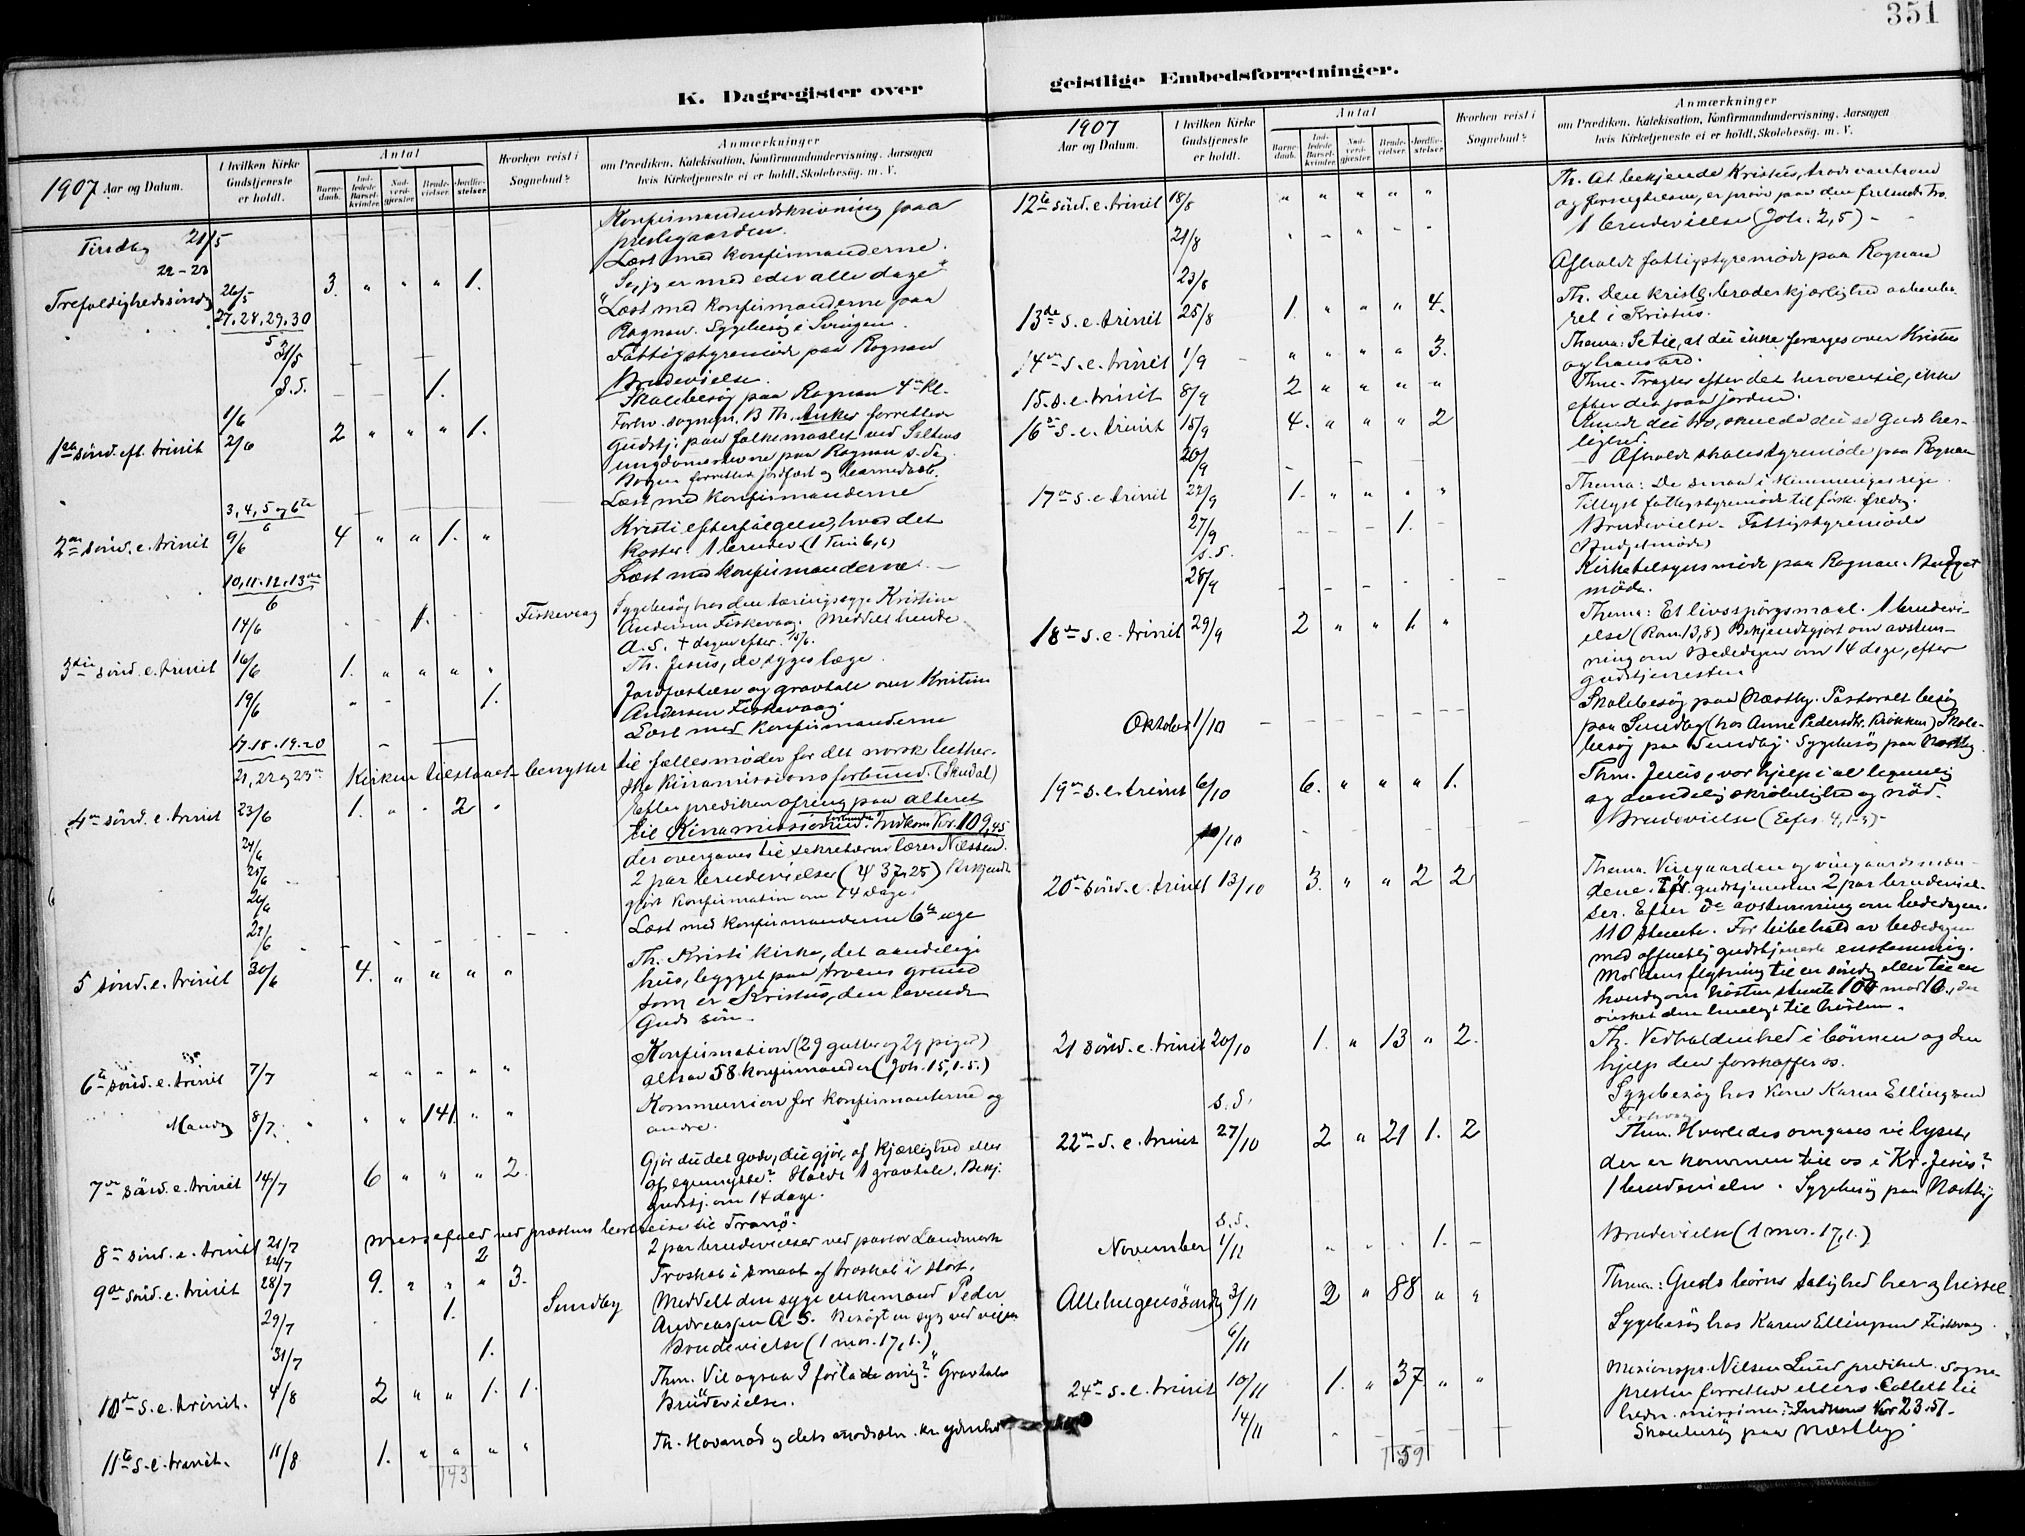 351
K. Dagregister over
geistlige Embedsforretninger.
1907 Aar og Datum.
I hvilken Kirke Gudstjeneste er holdt.
Antal
Barnedaab.
Indledede Barselkvinder.
Nadverdgjester
Brudevielser.
Jordfæstelser
Hvorhen reist i Sognebud?
Anmærkninger
om Prædiken, Katekisation, Konfirmandundervisning, Aarsagen
hvis Kirketjeneste ei er holdt, Skolebesøg, m. V.
Tirsdag 21/5
Konfirmandindskrivning paa
prestegaarden.
22-23
Læst med konfirmanderne.
Trefoldighedssøndag 26/5 3. " " " 1.
Se, jeg er med eder alle dage"
27. 28. 29. 30
5
"Læst med konfirmanderne paa
Rognan. Sygebesøg i
31/5
Fattigstyremøde paa Rognan
s. d. 1.
Brudevielse.
1/6
Skolebesøg paa Rognan 4de kl.
1ste sønd. eft. trinit 2/6 2 " " " 1.
Forhv. sognepr. B. Th. Anker forrettede
Gudstj. paa folkemaalet ved Saltens
ungdomsstevne paa Rognan s. dag.
forrettede jordfæst og barnedaab.
3, 4, 5 og 6te
6
Læst med konfirmanderne
2den sønd. e. trinit 9/6 4 " " 1. "
Kristi efterfølgelse, hvad det
koster. 1 brudev (1 Tim 6,6)
10. 11. 12. 13de
6
Læst med konfirmanderne.
14/6 1. Fiskevaag
Sygebesøg hos den tæringssyge Kristine
Andersen Fiskevaag. Meddelt hende
A. S. † dagen efter 15/6.
3die sønd. e. trinit 16/6 1. " " " "
Th. Jesus, de syges læge.
19/6 1.
Jordfæstelse og gravtale over Kristine
Andersen Fiskevaag.
17. 18. 19. 20
Læst med konfirmanderne
21, 22 og 23de Kirken tilstaaet benyttet til fællesmøder for det norsk luther-
ske Kinamissionsforbund. (Skudal)
4de sønd. e. trinit 23/6 1. " " 2 "
Efter prediken ofring paa alteret
til Kinamissionsforbundet. Indkom Kr. 109,45
der overgaves til sekretæren lærer Nilssen.
24/6
2 par brudevielser (Ψ 37,25) Bekjendt-
25/6
gjort konfirmation om 14 dage.
26/6
Læst med konfirmanderne 6te uge
27/6
5 sønd. e. trinit 30/6 4. " " " "
Th. Kristi kirke, det aandelige
hus, bygget paa troens grund
som er Kristus, den levende
Guds søn.
6te sønd. e. trinit 7/7 " " " " "
Konfirmation (29 gutter og 29 piger)
altsaa 58 konfirmander (Joh. 15,1-5.)
Mandag 8/7. " " 141 " "
Kommunion for konfirmanterne og
andre.
7de sønd. e. trinit 14/7 6 " " " 2.
Gjør du det gode, du gjør, af kjærlighed eller
af egennytte? Holdt 1 gravtale. Bekj.
gudstj. om 14 dage.
8de sønd. e. trinit 21/7 messefald ved prestens bortreise til Tranø.
22/7 2
2 par brudevielser ved pastor Landmark
9de sønd. e. trinit 28/7 9. " " " 3.
Troskab i smaat og troskab i stort.
29/7 1. Sundby
Meddelt den syge enkemand Peder
Andreassen A. S. Besøgt en syg ved veien
31/7 1.
Brudevielse (1 mos. 17,1.)
10de s. e. trinit. 4/8 2 " " 1. 1.
Thm. Vil ogsaa I forlade mig? Gravtale
Brudevielse.
11te s. e. trinit. 11/8 1. " " " "
Th. Hovmod og dets modsætn.
143
1907
Aar og Datum.
I hvilken Kirke Gudstjeneste er holdt.
Antal
Barnedaab.
Indledede Barselkvinder
Nadverdgjester
Brudevielser.
Jordfæstelser
Hvorhen reist i Sognebud?
Anmærkninger
om Prædiken, Katekisation, Konfirmandundervisning, Aarsagen
hvis Kirketjeneste ei er holdt, Skolebesøg, m. V.
12te sønd. e. trinit 18/8 " " " " "
Th. At bekjende Kristus, trods vantroens
og fornegtelsen, er prøve paa den frelsende tro.
21/8
1 brudevielse (Joh. 2,5) -
23/8
Afholdt fattigstyremøde paa Rognan
13de s. e. trinit 25/8 1. " " " 4.
Th. Den kristlige broderkjærlighed aabenba-
ret i Kristus.
14de s. e. trinit 1/9 " " " " 3.
Thema: Se til, at du ikke forarges over Kristus
og hans ord.
15. s. e. trinit 8/9 2 " " " "
Thm. Tragter efter det heroventil, ikke
efter det paa jorden.
16de s. e. trinit 15/9 4. " " " 2
du tro, skulde du se Guds her-
lighed.
20/9
Afholdt skolestyremøde paa Rognan
17de s. e. trinit 22/9 1. " " " "
Thema: De smaa i Himmeriges rige.
Tillyst fattigstyremøde til førstk. fredag.
27/9 1.
Brudevielse. Fattigstyremøde
s. d.
(Budgetmøde)
28/9
Kirketilsynsmøde paa Rognan. Budget
møde.
18de s. e. trinit 29/9 2 " " 1. "
Thema: Et livsspørgsmaal. 1 brudevi-
else (Rom. 13,8) Bekjendtgjort om avstem-
ning om Bededagen om 14 dage, efter
gudstjenesten.
Oktober 1/10
Skolebesøg paa Næstby. Pastoralt besøg
paa Sundby (hos Anne Pedersdtr. Krokken) Skole-
besøg paa Sundby. Sygebesøg paa Næstby.
19de s. e. trinit 6/10 6. " " " 1.
Thm. Jesus, vor hjelp i al legemlig
og aandelig skrøbelighed og nød.
/10
Brudevielse (Eefes. 4,1-3) -
20de sønd. e. trinit 13/10 3. " " 2 2
Thema. Vingaarden og vingaardsmæn-
dene. Før gudstjenesten 2 par brudeviel-
ser. Efter do avstemning om bededagen.
110 stemte. For bibehold av bededagen
med offentlig gudstjeneste enstemmig.
Mod dens flytning til en søndag eller til en
hverdag om høsten stemte 104 mod 6, der
ønsket den henlagt til høsten.
21 sønd. e. trinit 20/10 1. " 13 " 2.
Th. Vedholdenhed i bønnen og den
hjelp den forskaffer os.
s. d.
Sygebesøg hos Kone Karen Ellingsen
Fiskvaag
22de s. e. trinit 27/10 2 " 21 1. 2
Thm. Hvorledes omgaaes vi lyset,
der er kommen til os i Kr. Jesus?
1 brudevielse. Sygebesøg paa Næstby
s. d.
November 1/11 " " . 1. -
Brudevielse (1 mos. 17,1.)
Allehelgenssøndag 3/11 2 " 88 " "
Thema: Guds børns salighed her og hisset
6/11
Sygebesøg hos Karen Ellingsen Fiskvaag.
24de s. e. trinit 10/11 1. " 37 " "
Missionspr. Nilsen Lund prediket. Sogne-
presten forrettede ellers. Collekt til
hedn. missionen. Indkom Kr 23.51.
14/11
Skolebesøg paa Næstby
159